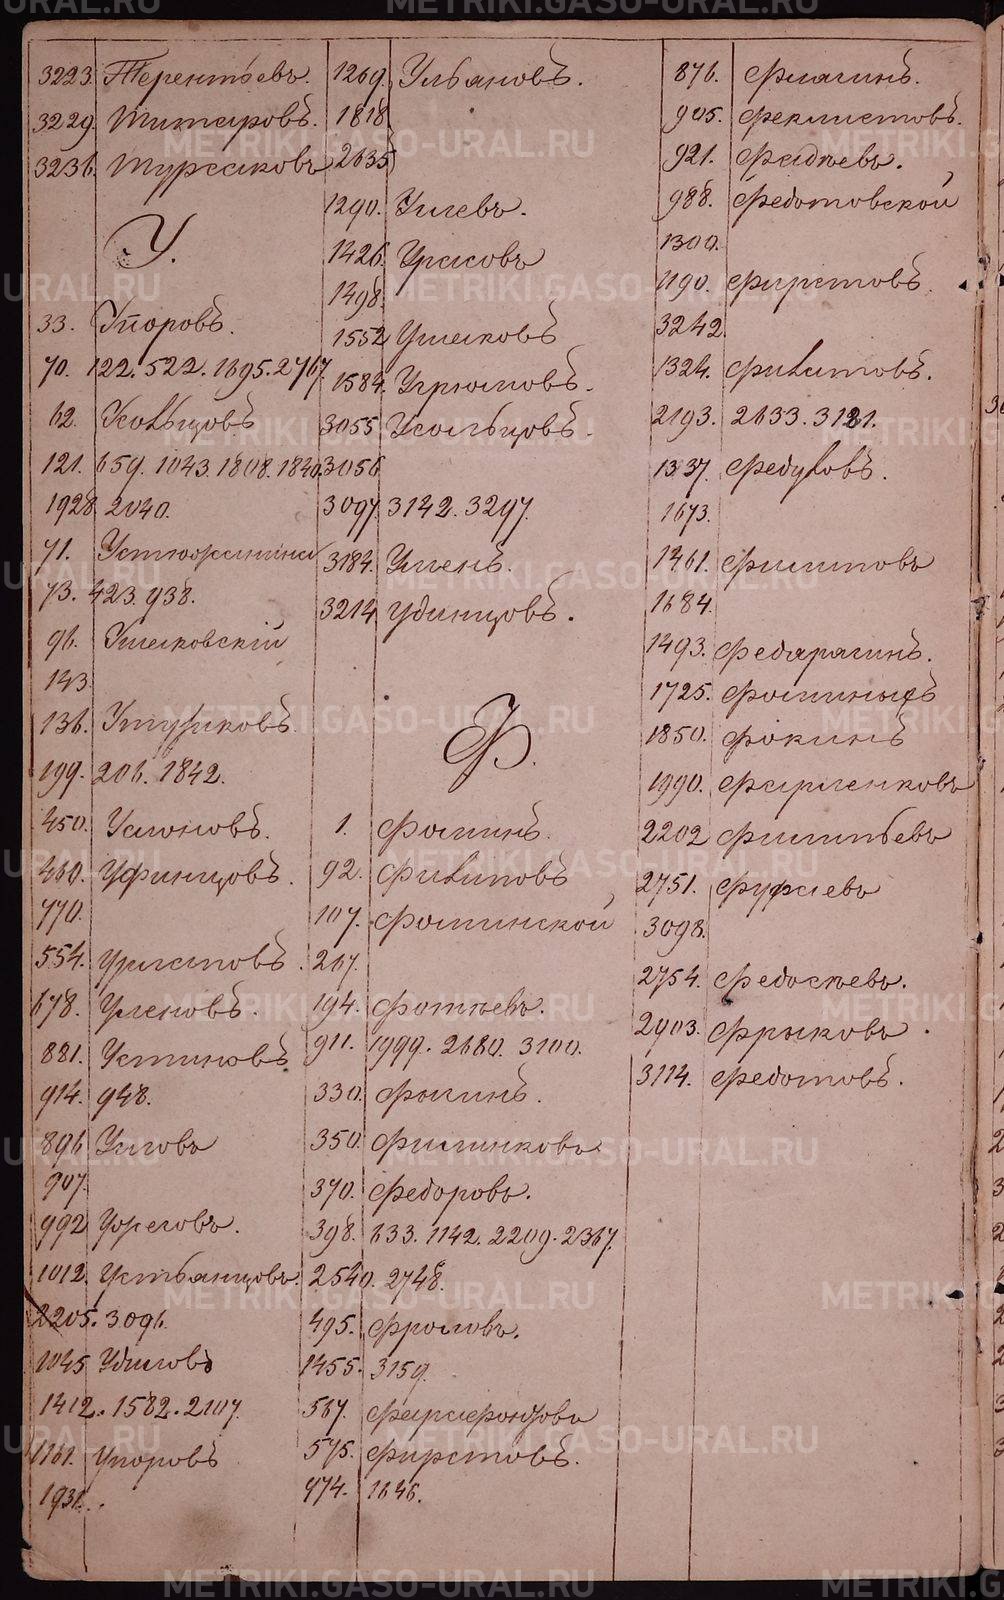 3223. Терентьевъ.
3229. Титаровъ.
3236. Турсаковъ
У.
33. Упоровъ.
70. 122. 522. 1695. 2767
62. Усольцовъ
121. 659. 1043. 1808. 1840.
1928. 2040.
71. Устюжанинъ
73. 423. 938.
96. Ушаковскій
143
136.
199. 206. 1842.
450.
460. Уфинцовъ.
770.
554.
678.
881. Устиновъ
914. 948.
896
907.
992
1012. Устьянцовъ.
2205. 3096.
1045
1412. 1582. 2107.
1161. Упоровъ
1931.
1269. Ульяновъ.
1818
2635
1290.
1426. Урасовъ
1498.
1552 Ушаковъ
1584. Угрюмовъ.
3055 Усольцовъ.
3056
3097. 3142. 3297.
3184.
3214 Удинцовъ.
Ф.
1. Фоминъ.
92. Филиповъ
107. Фоминской
267.
194. Фотѣевъ.
911. 1999. 2680. 3100.
330.
350. Филинковъ
370. Федоровъ.
398. 633. 1142. 2209. 2367.
2540. 2748.
495. Фроловъ.
1455. 3159.
567.
575. Фирстовъ.
974. 1646.
876.
905. Феклистовъ.
921. Фадѣевъ.
988. Федотовской
1300.
1190. Фирстовъ.
3242.
1324. Филатовъ.
2193. 2633. 3121.
1337. Федуловъ.
1673.
1461. Филиповъ
1684.
1493.
1725. Фоминыхъ
1850. Фокинъ
1990.
2202 Филипьевъ
2751.
3098.
2754. Федосѣевъ.
2903. Фрыковъ.
3114. Федотовъ.
METRIKI.GASO-URAL.RU